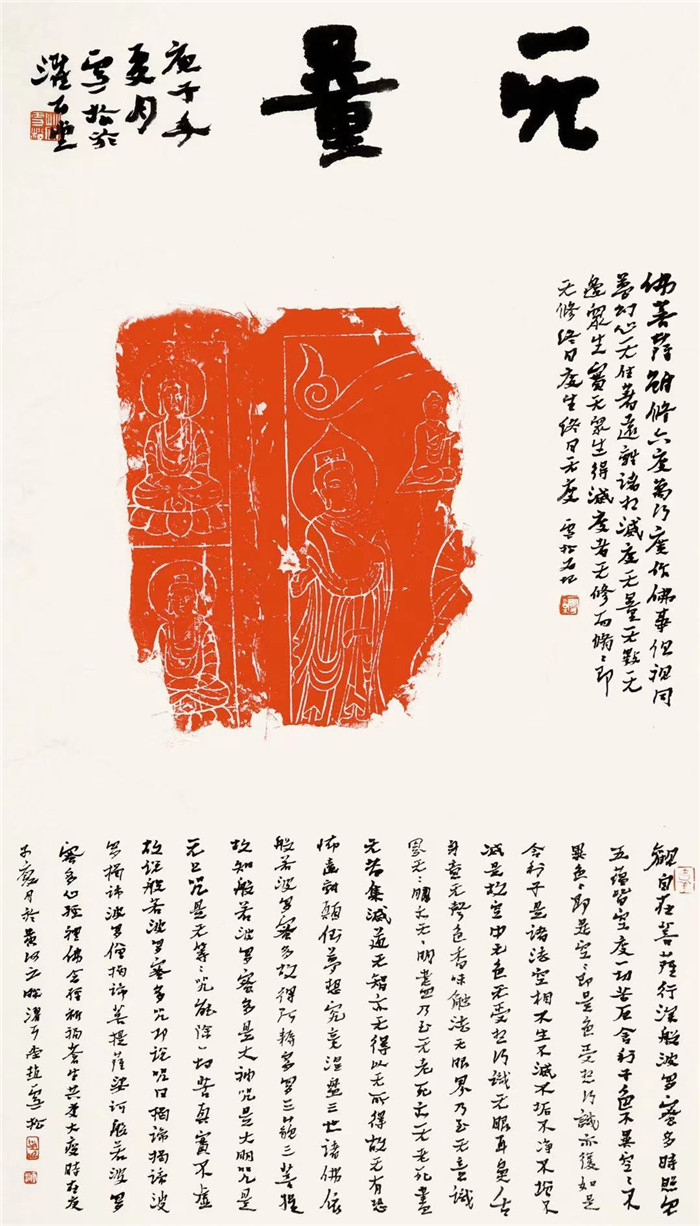 无量
庚子年
夏月
雪松於
濯石堂
佛菩萨
修六度万行广作佛事但视同
梦幻心无住著远离诸相灭度无量无数无
边众生实无众生得灭度者无修而修〻即
无修终日度生终日无度 雪松
观自在菩萨行深般波罗蜜多时照见
五蕴皆空度一切苦厄舍利子色不异空〻不
异色〻即是空〻即是色受想行识亦复如是
舍利子是诸法空相不生不灭不垢不净不增不
减是故空中无色无受想行识无眼耳鼻舌
身意无声色香味触法无眼界乃至无意识
界无〻明亦无〻明尽乃至无老死亦无老死尽
无苦集灭道无智亦无得以无所得故无有恐
怖远离颠倒梦想究竟涅盘三世诸佛依
般若波罗蜜多故得阿耨多罗三藐三菩提
故知般若波罗蜜多是大神咒是大明咒是
无上咒是无等〻咒能除一切苦真实不虚
故说般若波罗蜜多咒即说咒曰揭谛揭谛波
罗揭谛波罗僧揭谛菩提萨婆诃般若波罗
蜜多心经 礼佛念经祈祷苍生共度大疫时在庚
子夏月於黄河之
濯石堂赵雪松